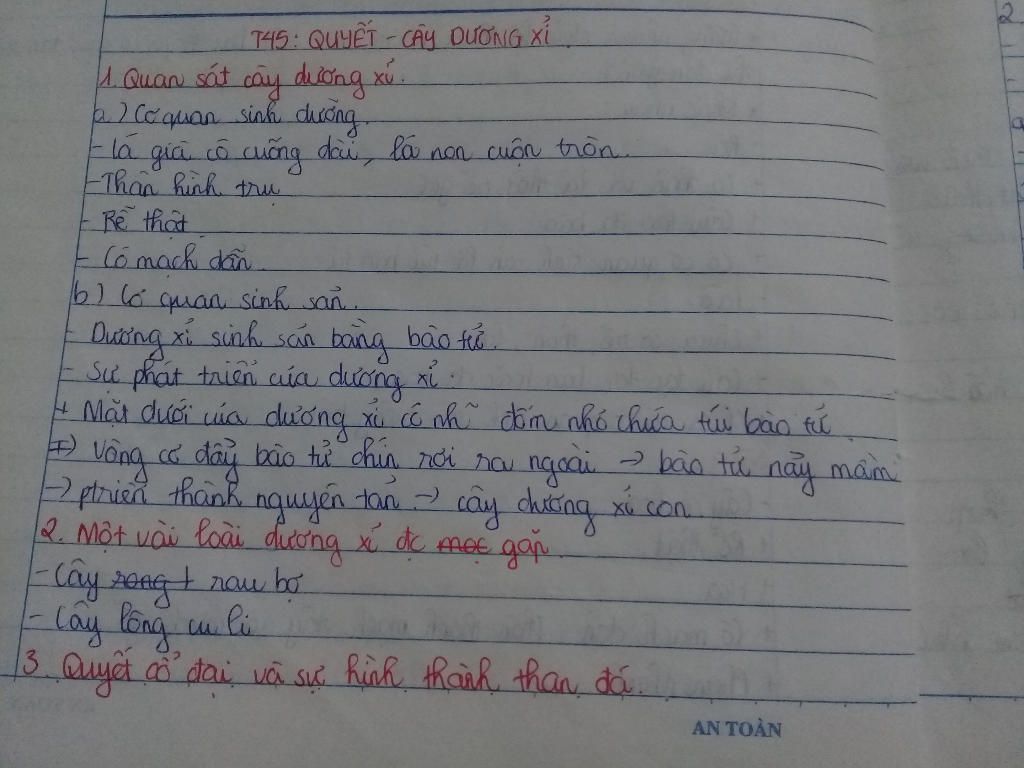 T45: QUYẾT - CÂY DƯƠNG XỈ.
1. Quan sát cây dương xỉ.
a) Cơ quan sinh dưỡng.
- Lá già có cuống dài, lá non cuộn tròn.
- Thân hình trụ
- Rễ thật
- Có mạch dẫn.
b) Cơ quan sinh sản.
- Dương xỉ sinh sản bằng bào tử.
- Sự phát triển của dương xỉ.
+ Mặt dưới của dương xỉ có nh~ đốm nhỏ chứa túi bào tử.
=> Vòng cơ đẩy bào tử chín rơi ra ngoài → bào tử nảy mầm
→ ptriển thành nguyên tản → cây dương xỉ con.
2. Một vài loài dương xỉ đc mọc gặp.
- Cây rong + rau bợ
- Cây lông cu li
3. Quyết cổ đại và sự hình thành than đá.
AN TOÀN
2.